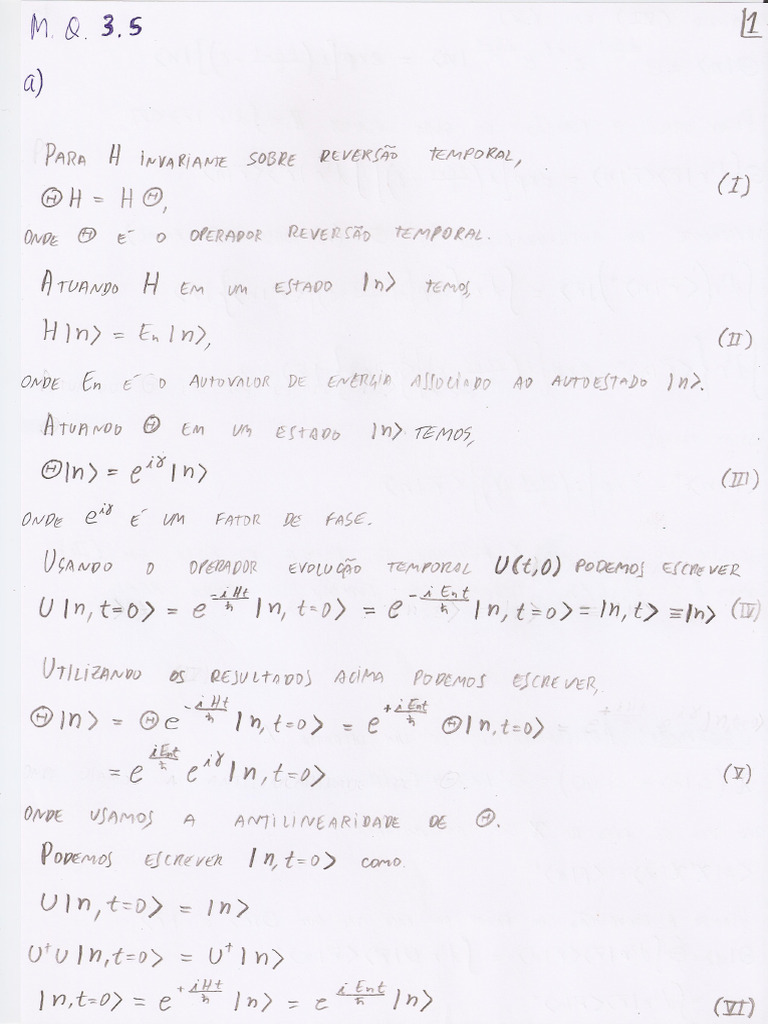 M. Q. 3.5
1
a)
PARA H INVARIANTE SOBRE REVERSÃO TEMPORAL,
ΘH = HΘ, (I)
ONDE Θ É O OPERADOR REVERSÃO TEMPORAL.
ATUANDO H EM UM ESTADO |n> TEMOS,
H|n> = En|n>, (II)
ONDE En É O AUTOVALOR DE ENERGIA ASSOCIADO AO AUTOESTADO |n>.
ATUANDO Θ EM UM ESTADO |n> TEMOS,
Θ|n> = e^{iγ}|n> (III)
ONDE e^{iγ} É UM FATOR DE FASE.
USANDO O OPERADOR EVOLUÇÃO TEMPORAL U(t,0) PODEMOS ESCREVER
U|n,t=0> = e^{-iHt/ħ}|n,t=0> = e^{-iEnt/ħ}|n,t=0> = |n,t> ≡ |n> (IV)
UTILIZANDO OS RESULTADOS ACIMA PODEMOS ESCREVER,
Θ|n> = Θe^{-iHt/ħ}|n,t=0> = e^{+iEnt/ħ} Θ|n,t=0>
= e^{iEnt/ħ} e^{iγ}|n,t=0> (V)
ONDE USAMOS A ANTILINEARIDADE DE Θ.
PODEMOS ESCREVER |n,t=0> COMO
U|n,t=0> = |n>
U†U|n,t=0> = U†|n>
|n,t=0> = e^{+iHt/ħ}|n> = e^{iEnt/ħ}|n> (VI)